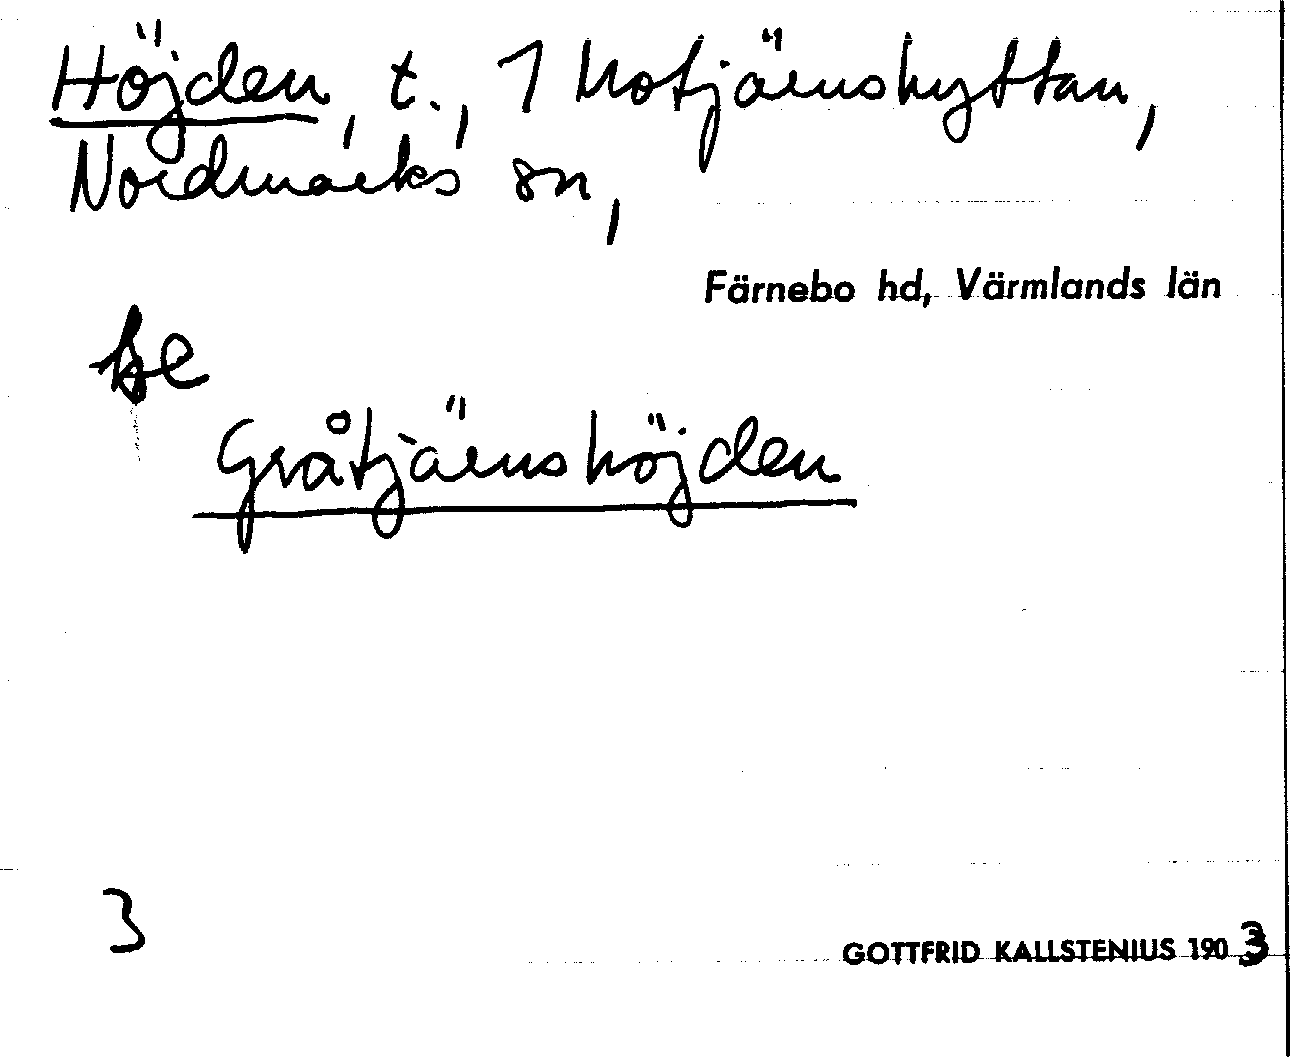 Höjden, t., 1 Motjärnshyttan,
Nordmarks sn,
Färnebo hd, Värmlands län
se
Gråtjärnshöjden
3
GOTTFRID KALLSTENIUS 1903